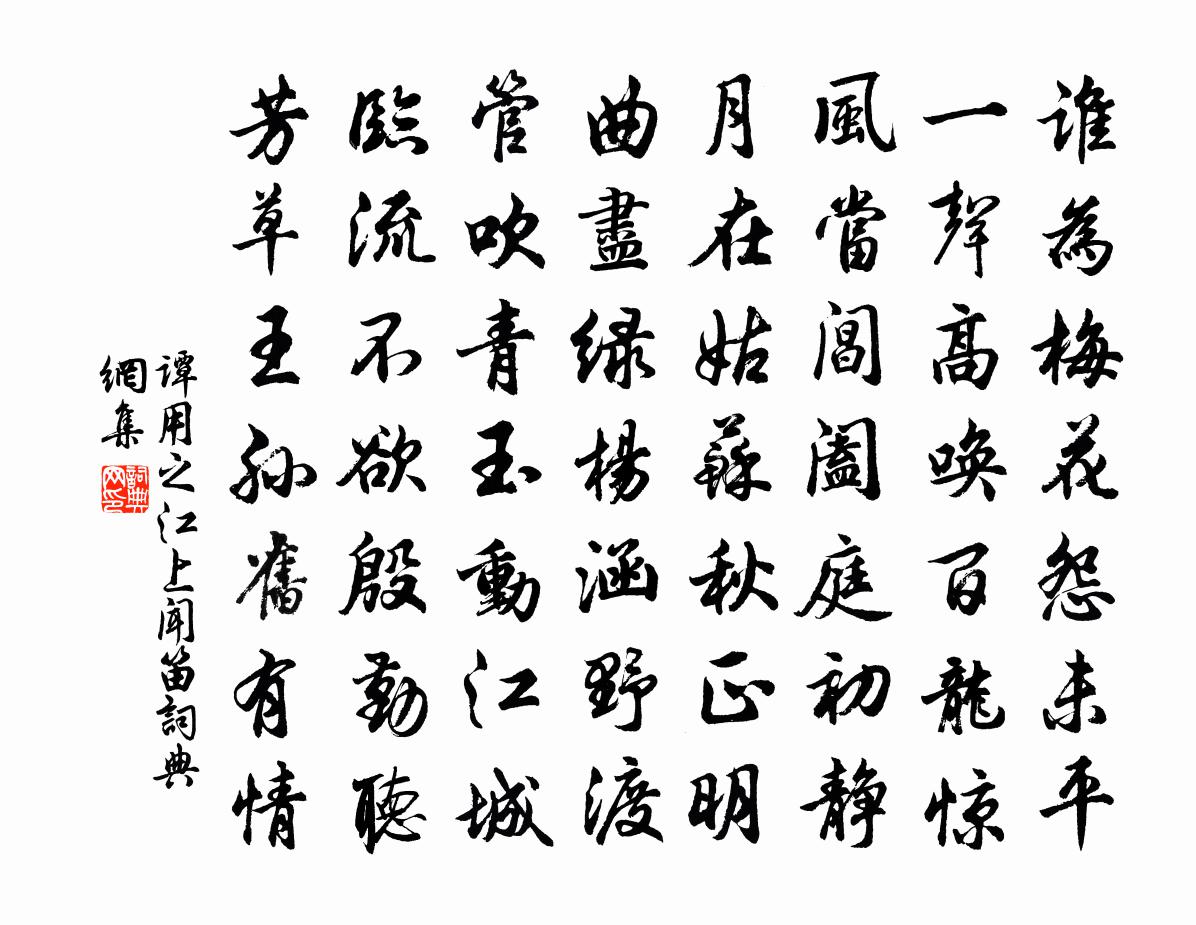 谁為梅花怨未平
一聲高唤百龍惊
風當閶闔庭初静
月在姑蘇秋正明
曲盡绿楊涵野渡
管吹青玉動江城
臨流不欲殷勤聽
芳草王孫舊有情
譚用之江上聞笛詞典
網集
詞典
网印